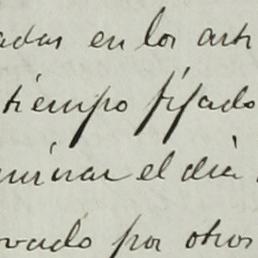 adas en los arti
tiempo fijado
minar el dia
ovado por otros